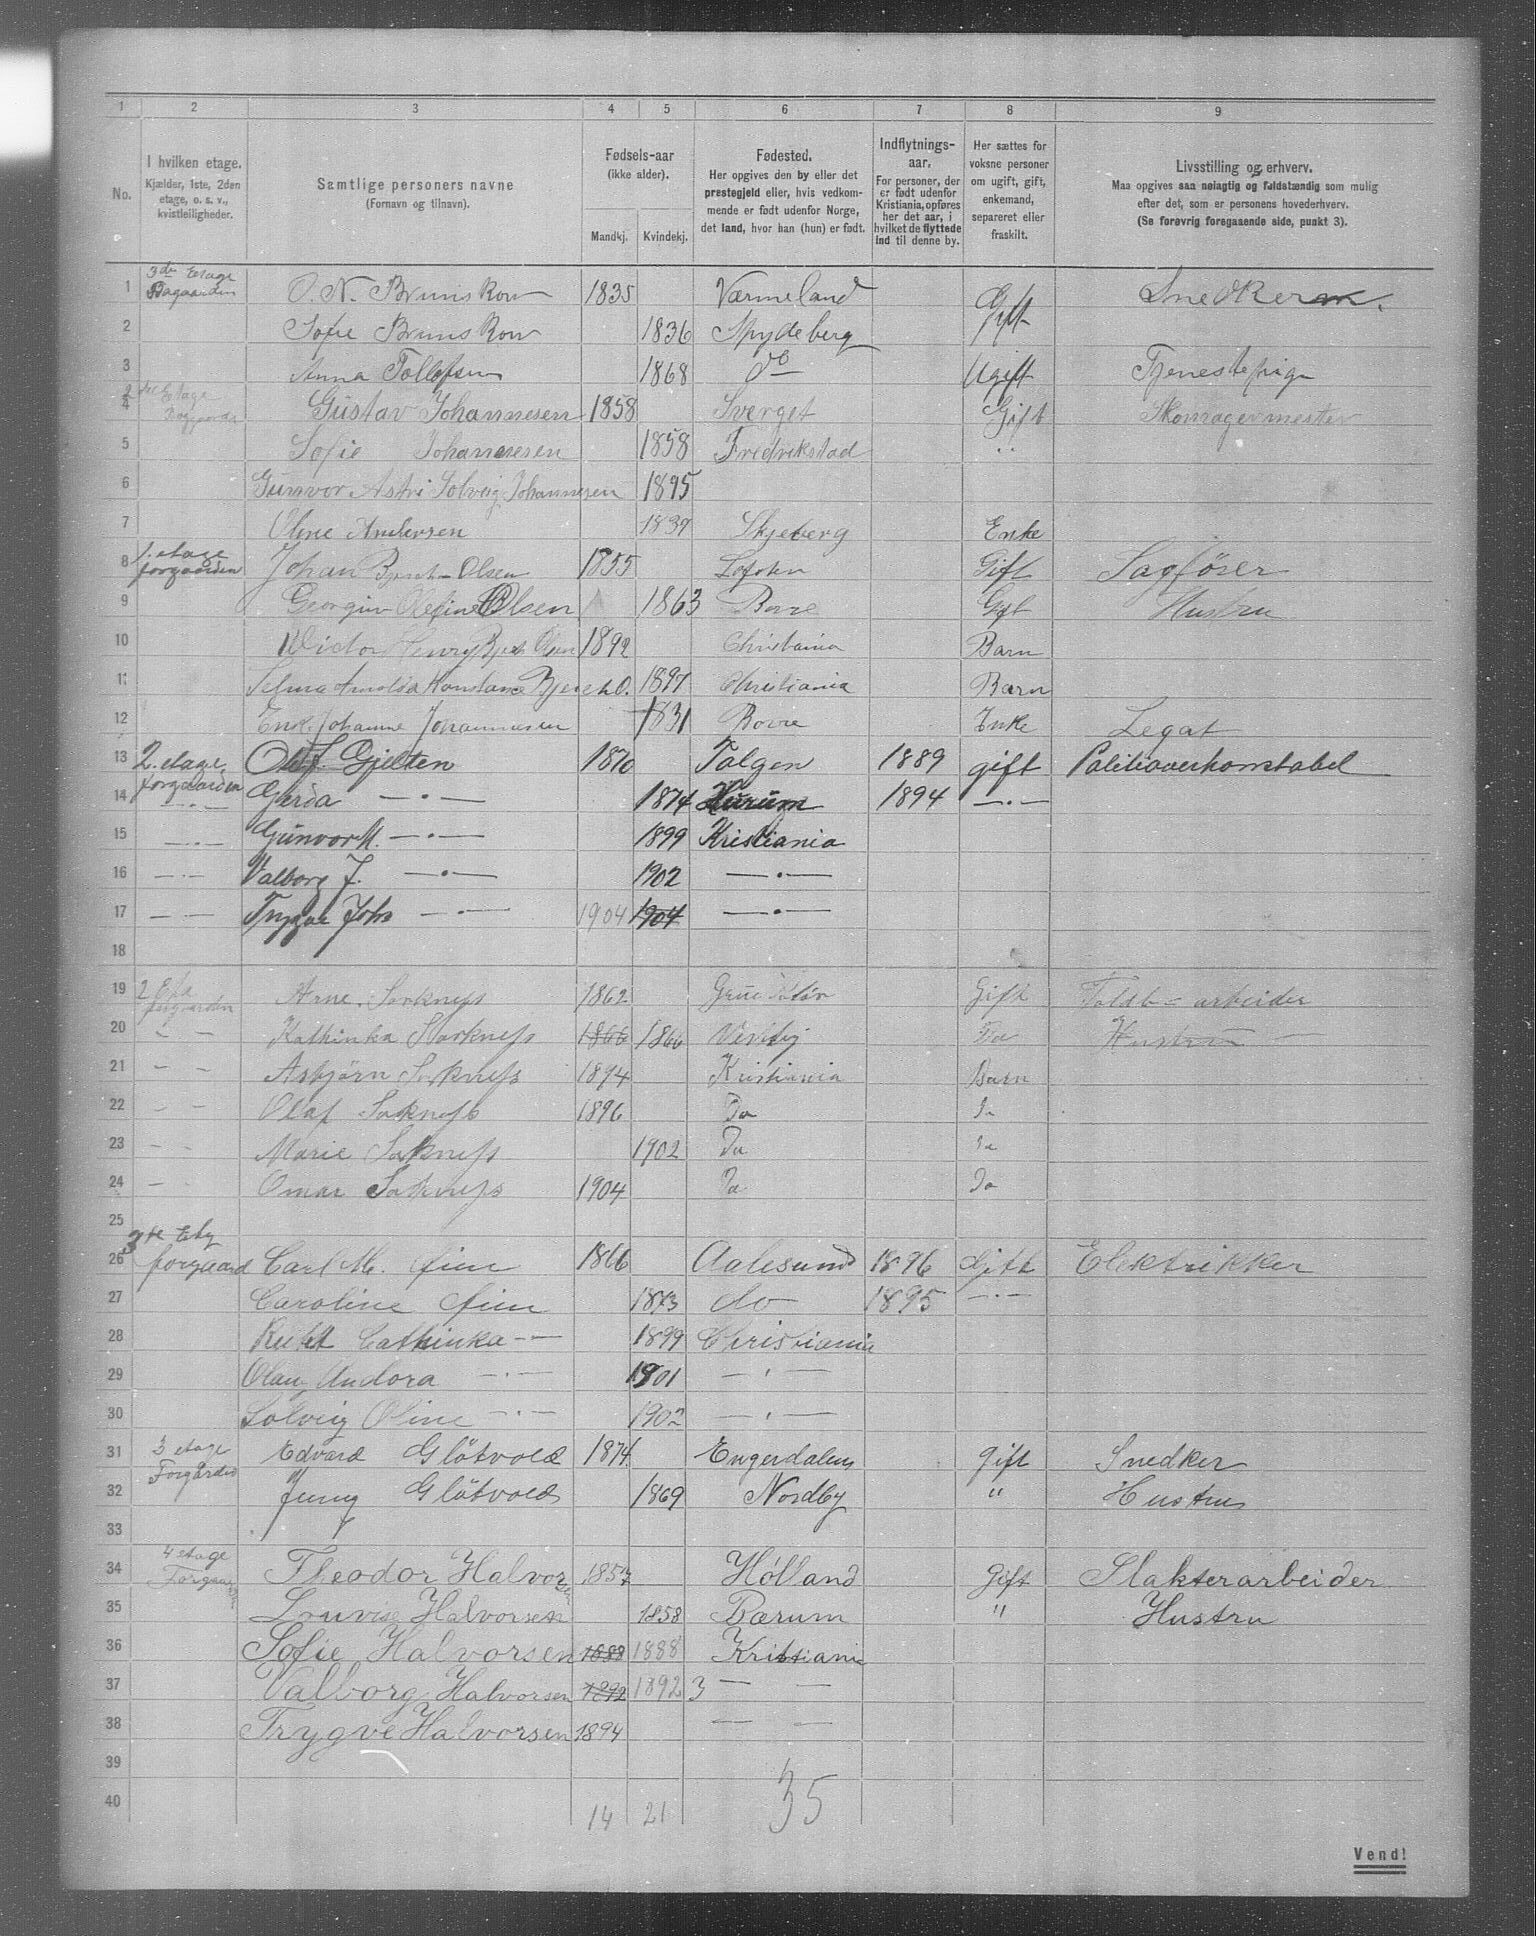 1 2 3 4 5 6 7 8 9
No.
I hvilken etage.
Kjælder, 1ste, 2den
etage, o. s. v.,
kvistleiligheder.
Samtlige personers navne
(Fornavn og tilnavn).
Fødsels-aar
(ikke alder).
Mandkj. Kvindekj.
Fødested.
Her opgives den by eller det
prestegjeld eller, hvis vedkom-
mende er født udenfor Norge,
det land, hvor han (hun) er født.
Indflytnings-
aar.
For personer, der
er født udenfor
Kristiania, opføres
her det aar, i
hvilket de flyttede
ind til denne by.
Her sættes for
voksne personer
om ugift, gift,
enkemand,
separeret eller
fraskilt.
Livsstilling og erhverv.
Maa opgives saa nøiagtig og fuldstændig som mulig
efter det, som er personens hovederhverv.
(Se forøvrig foregaaende side, punkt 3).
3de Etage
1 Bagaarden O. N. Brunskow 1835 Værmeland Gift Snedkerm.
2 Sofie Brunskow 1836 Spydeberg
3 Anna Tollefsen 1868 do Ugift Tjenestepige
2den Etage
4 Gustav Johannesen 1858 Sverget Gift Skomagermester
5 Sofie Johannesen 1858 Fredrikstad "
6 Gunvor Astri Solveig Johannesen 1895
7 Oline Andersen 1839 Skjeberg Enke
1. etage
8 forgaarden Johan Olsen 1855 Gift Sagfører
9 Olefine Olsen 1863 Borre Gift Hustru
10 Victor Henry Olsen 1892 Christiania Barn
11 Selma Konstanse O. 1897 Christiania Barn
12 Enke Johanne Johannesen 1831 Borre Enke Legat
13 2. etage Olef Gjelten 1870 Tolgen 1889 gift Politioverkonstabel
forgaarden
14 — · — Gerda — · — 1874 Hurum 1894 — · —
15 — · — Gunvor M. — · — 1899 Kristiania
16 — · — Valborg J. — · — 1902 — · —
17 — — Trygve Johs — · — 1904 1904 — · —
18
19 2 Eta forgaarden Arne Sorkness 1862 Grue Gift Toldb- arbeider
20 " " Kathinka Sorkness 1866 1866 Do Hustru
21 " " Asbjørn Sorkness 1894 Kristiania Barn
22 " " Olaf Sorkness 1896 Do Do
23 " " Marie Sorkness 1902 Do Do
24 " " Omar Sorkness 1904 Do Do
25
3de Etg
26 forgaard Carl M. 1866 Aalesund 1896 Gift Elektrikker
27 Caroline 1873 do 1895 — · —
28 Ruth Cathinka — 1899 Christiania
29 Andora — · — 1901 — · —
30 Solveig Oline — · — 1902 — · —
31 3 etage Edvard Gløtvold 1874 Engerdalen gift Snedker
Forgården
32 Jenny Gløtvold 1869 Nordby " Hustru
33
4 etage
34 Forgaarden Theodor Halvorsen 1857 Hólland Gift Slakterarbeider
35 Louvise Halvorsen 1858 Bærum " Hustru
36 Sofie Halvorsen 1888 1888 Kristiania
37 Valborg Halvorsen 1892 1892 3 — —
38 Trygve Halvorsen 1894 — —
39
40 14 21 35
Vend!